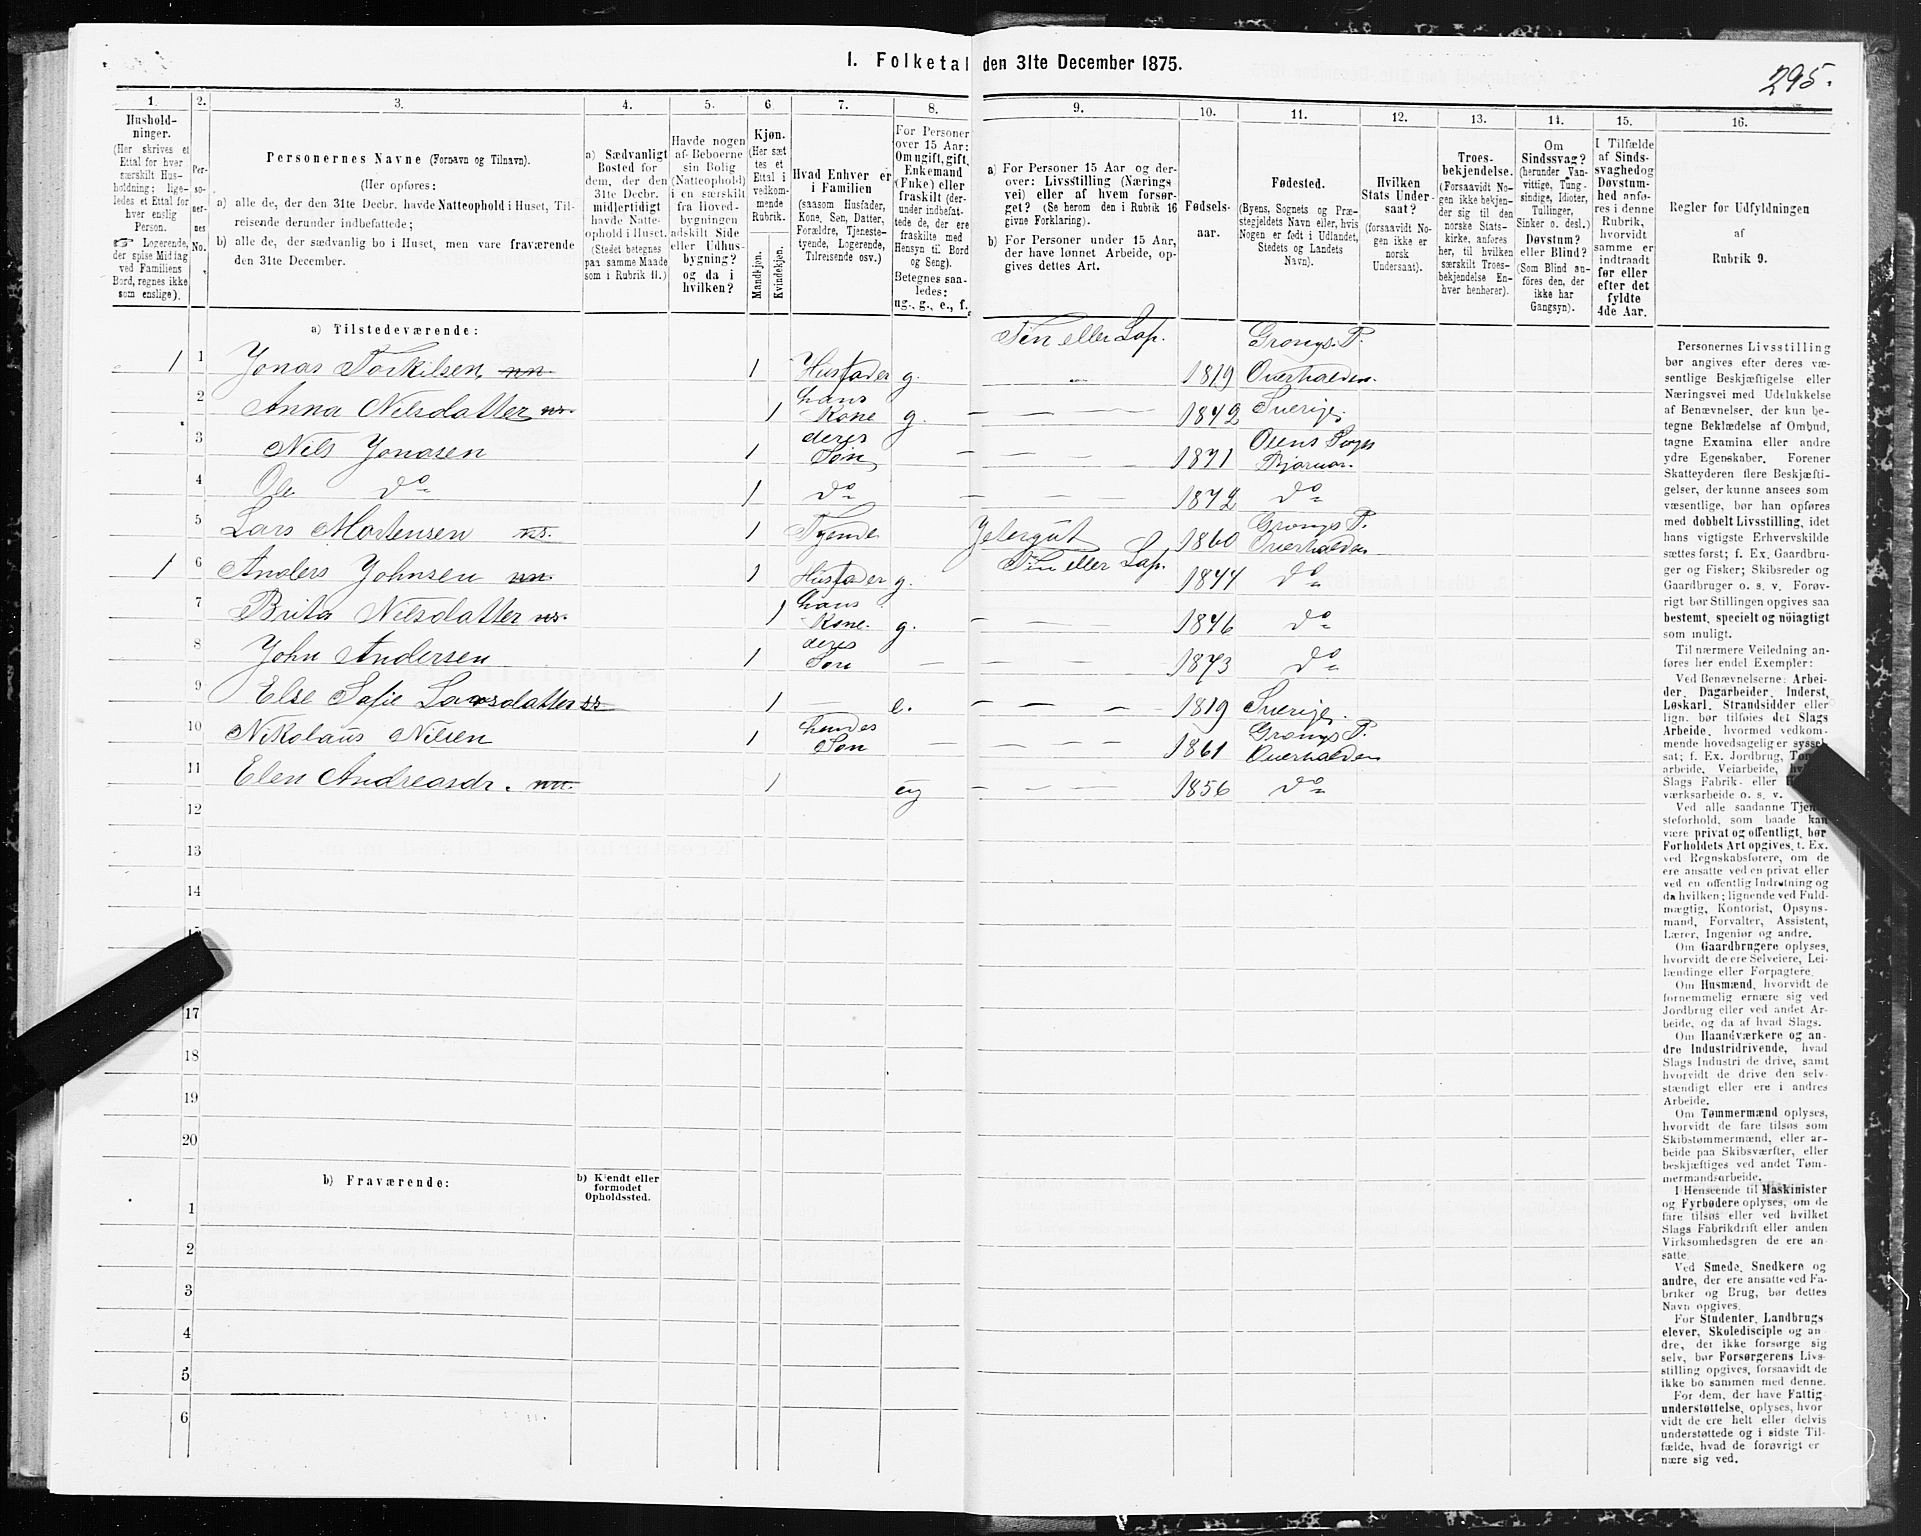 1. Folketal den 31te December 1875.
295.
1.
Hushold-
ninger.
(Her skrives et
Ettal for hver
særskilt Hus-
holdning; lige-
ledes et Ettal for
hver enslig
Person.
☞ Logerende,
der spise Middag
ved Familiens
Bord, regnes ikke
som enslige).
2.
Per-
so-
ner-
nes
No.
3.
Personernes Navne (Fornavn og Tilnavn).
(Her opføres:
a) alle de, der den 31te Decbr. havde Natteophold i Huset, Til-
reisende derunder indbefattede;
b) alle de, der sædvanlig bo i Huset, men vare fraværende
den 31te December.
4.
a) Sædvanligt
Bosted for
dem, der den
31te Decbr.
midlertidigt
havde Natte-
ophold i Huset.
(Stedet betegnes
paa samme Maade
som i Rubrik 11.)
5.
Havde nogen
af Beboerne
sin Bolig
(Natteophold)
i en særskilt
fra Hoved-
bygningen
adskilt Side
eller Udhus-
bygning?
og da i
hvilken?
6.
Kjøn.
(Her sæt
tes et
Ettal i
vedkom-
mende
Rubrik.
Mandkjøn.
Kvindekjøn.
7.
Hvad Enhver er
i Familien
(saasom Husfader,
Kone, Søn, Datter,
Forældre, Tjeneste-
tyende, Logerende,
Tilreisende osv.)
8.
For Personer
over 15 Aar:
Om ugift, gift,
Enkemand
(Enke) eller
fraskilt (der-
under indbefat-
tede de, der ere
fraskilte med
Hensyn til Bord
og Seng).
Betegnes saa-
ledes:
ug., g., e., f.
9.
a) For Personer 15 Aar og der-
over: Livsstilling (Nærings
vei) eller af hvem forsør-
get? (Se herom den i Rubrik 16
givne Forklaring).
b) For Personer under 15 Aar,
der have lønnet Arbeide, op-
gives dettes Art.
10.
Fødsels-
aar.
11.
Fødested.
(Byens, Sognets og Præ-
stegjeldets Navn eller, hvis
Nogen er født i Udlandet,
Stedets og Landets
Navn).
12.
Hvilken
Stats Under-
saat?
(forsaavidt No-
gen ikke er
norsk
Undersaat).
13.
Troes-
bekjendelse.
(Forsaavidt No-
gen ikke bekjen-
der sig til den
norske Stats-
kirke, anføres
her, til hvilken
særskilt Troes-
bekjendelse En-
hver henhører).
14.
Om
Sindssvag?
(herunder Van-
vittige, Tung-
sindige, Idioter,
Tullinger,
Sinker o. desl.)
Døvstum?
eller Blind?
(Som Blind an-
føres den, der
ikke har
Gangsyn).
15.
I Tilfælde
af Sinds-
svaghed og
Døvstum-
hed anfø-
res i denne
Rubrik,
hvorvidt
samme er
indtraadt
før eller
efter det
fyldte
4de Aar.
16.
Regler for Udfyldningen
af
Rubrik 9.
a) Tilstedeværende:
Fin eller Lap. Grongs P.
1 1 Jonas Torkilsen nn. 1 Husfader g. " 1819 Overhalden.
2 Anna Nilsdatter ns. 1 hans Kone g. — — — 1842 Sverige.
3 Nils Jonasen 1 deres Søn — — — — 1871 Bjørnør.
4 Ole do 1 do — — — — 1872 do
5 Lars Mortensen ns. 1 Tyende Jetergut 1860 Grongs P. Overhalden
1 6 Anders Johnsen nn. 1 Husfader g. Fin eller Lap. 1844 do
7 Brita Nilsdatter ns. 1 hans Kone. g. — — — 1846 do
8 John Andersen 1 deres Søn — — — — 1873 do
9 Else Sofie Larsdatter ss 1 — e. — — — 1819 Sverige.
10 Nikolaus Nilsen 1 hendes Søn — — — — 1861 Grongs P. Overhalden
11 Elen Andreasdr. nn. 1 ug — — — 1856 do
12
13
14
17
18
19
20
b) Fraværende:
b) Kjendt eller
formodet
Opholdssted.
1
2
3
4
5
6
Personernes Livsstilling
bør angives efter deres væ-
sentlige Beskjæftigelse eller
Næringsvei med Udelukkelse
af Benævnelser, der kun be-
tegne Beklædelse af Ombud,
tagne Examina eller andre
ydre Egenskaber. Forener
Skatteyderen flere Beskjæfti-
gelser, der kunne ansees som
væsentlige, bør han opføres
med dobbelt Livsstilling, idet
hans vigtigste Erhvervskilde
sættes først; f. Ex. Gaardbru-
ger og Fisker; Skibsreder og
Gaardbruger o. s. v. Forøv-
rigt bør Stillingen opgives saa
bestemt, specielt og nøiagtigt
som muligt.
Til nærmere Veiledning an-
føres her endel Exempler:
Ved Benævnelserne: Arbei-
der, Dagarbeider, Inderst,
Løskarl, Strandsidder eller
lign. bør tilføies det Slags
Arbeide, hvormed vedkom-
mende hovedsagelig er syssel-
sat; f. Ex. Jordbrug,
arbeide, Veiarbeide,
Slags Fabrik- eller
værksarbeide o. s. v.
Ved alle saadanne Tjene-
steforhold, som baade kan
være privat og offentligt, bør
Forholdets Art opgives, t. Ex.
ved Regnskabsførere, om de
ere ansatte ved en privat eller
ved en offentlig Indretning og
da hvilken; lignende ved Fuld-
mægtig, Kontorist, Opsyns-
mand, Forvalter, Assistent,
Lærer, Ingeniør og andre.
Om Gaardbrugere oplyses,
hvorvidt de ere Selveiere, Lei-
lændinge eller Forpagtere.
Om Husmænd, hvorvidt de
fornemmelig ernære sig ved
Jordbrug eller ved andet Ar-
beide, og da af hvad Slags.
Om Haandværkere og an-
dre Industridrivende, hvad
Slags Industri de drive, samt
hvorvidt de drive den selv-
stændigt eller ere i andres
Arbeide.
Om Tømmermænd oplyses,
hvorvidt de fare tilsøs som
Skibstømmermænd, eller ar-
beide paa Skibsværfter, eller
beskjæftiges ved andet Tøm-
mermandsarbeide.
I Henseende til Maskinister
og Fyrbødere oplyses, om de
fare tilsøs eller ved hvilket
Slags Fabrikdrift eller anden
Virksomhedsgren de ere an-
satte.
Ved Smede, Snedkere og
andre, der ere ansatte ved Fa-
briker og Brug, bør dettes
Navn opgives.
For Studenter, Landbrugs-
elever, Skoledisciple og an-
dre, der ikke forsørge sig
selv, bør Forsørgerens Livs-
stilling opgives, forsaavidt de
ikke bo sammen med denne.
For dem, der have Fattig-
understøttelse, oplyses, hvor
vidt de ere helt eller delvis
understøttede og i sidste Til-
fælde, hvad de forøvrigt er
nære sig ved.